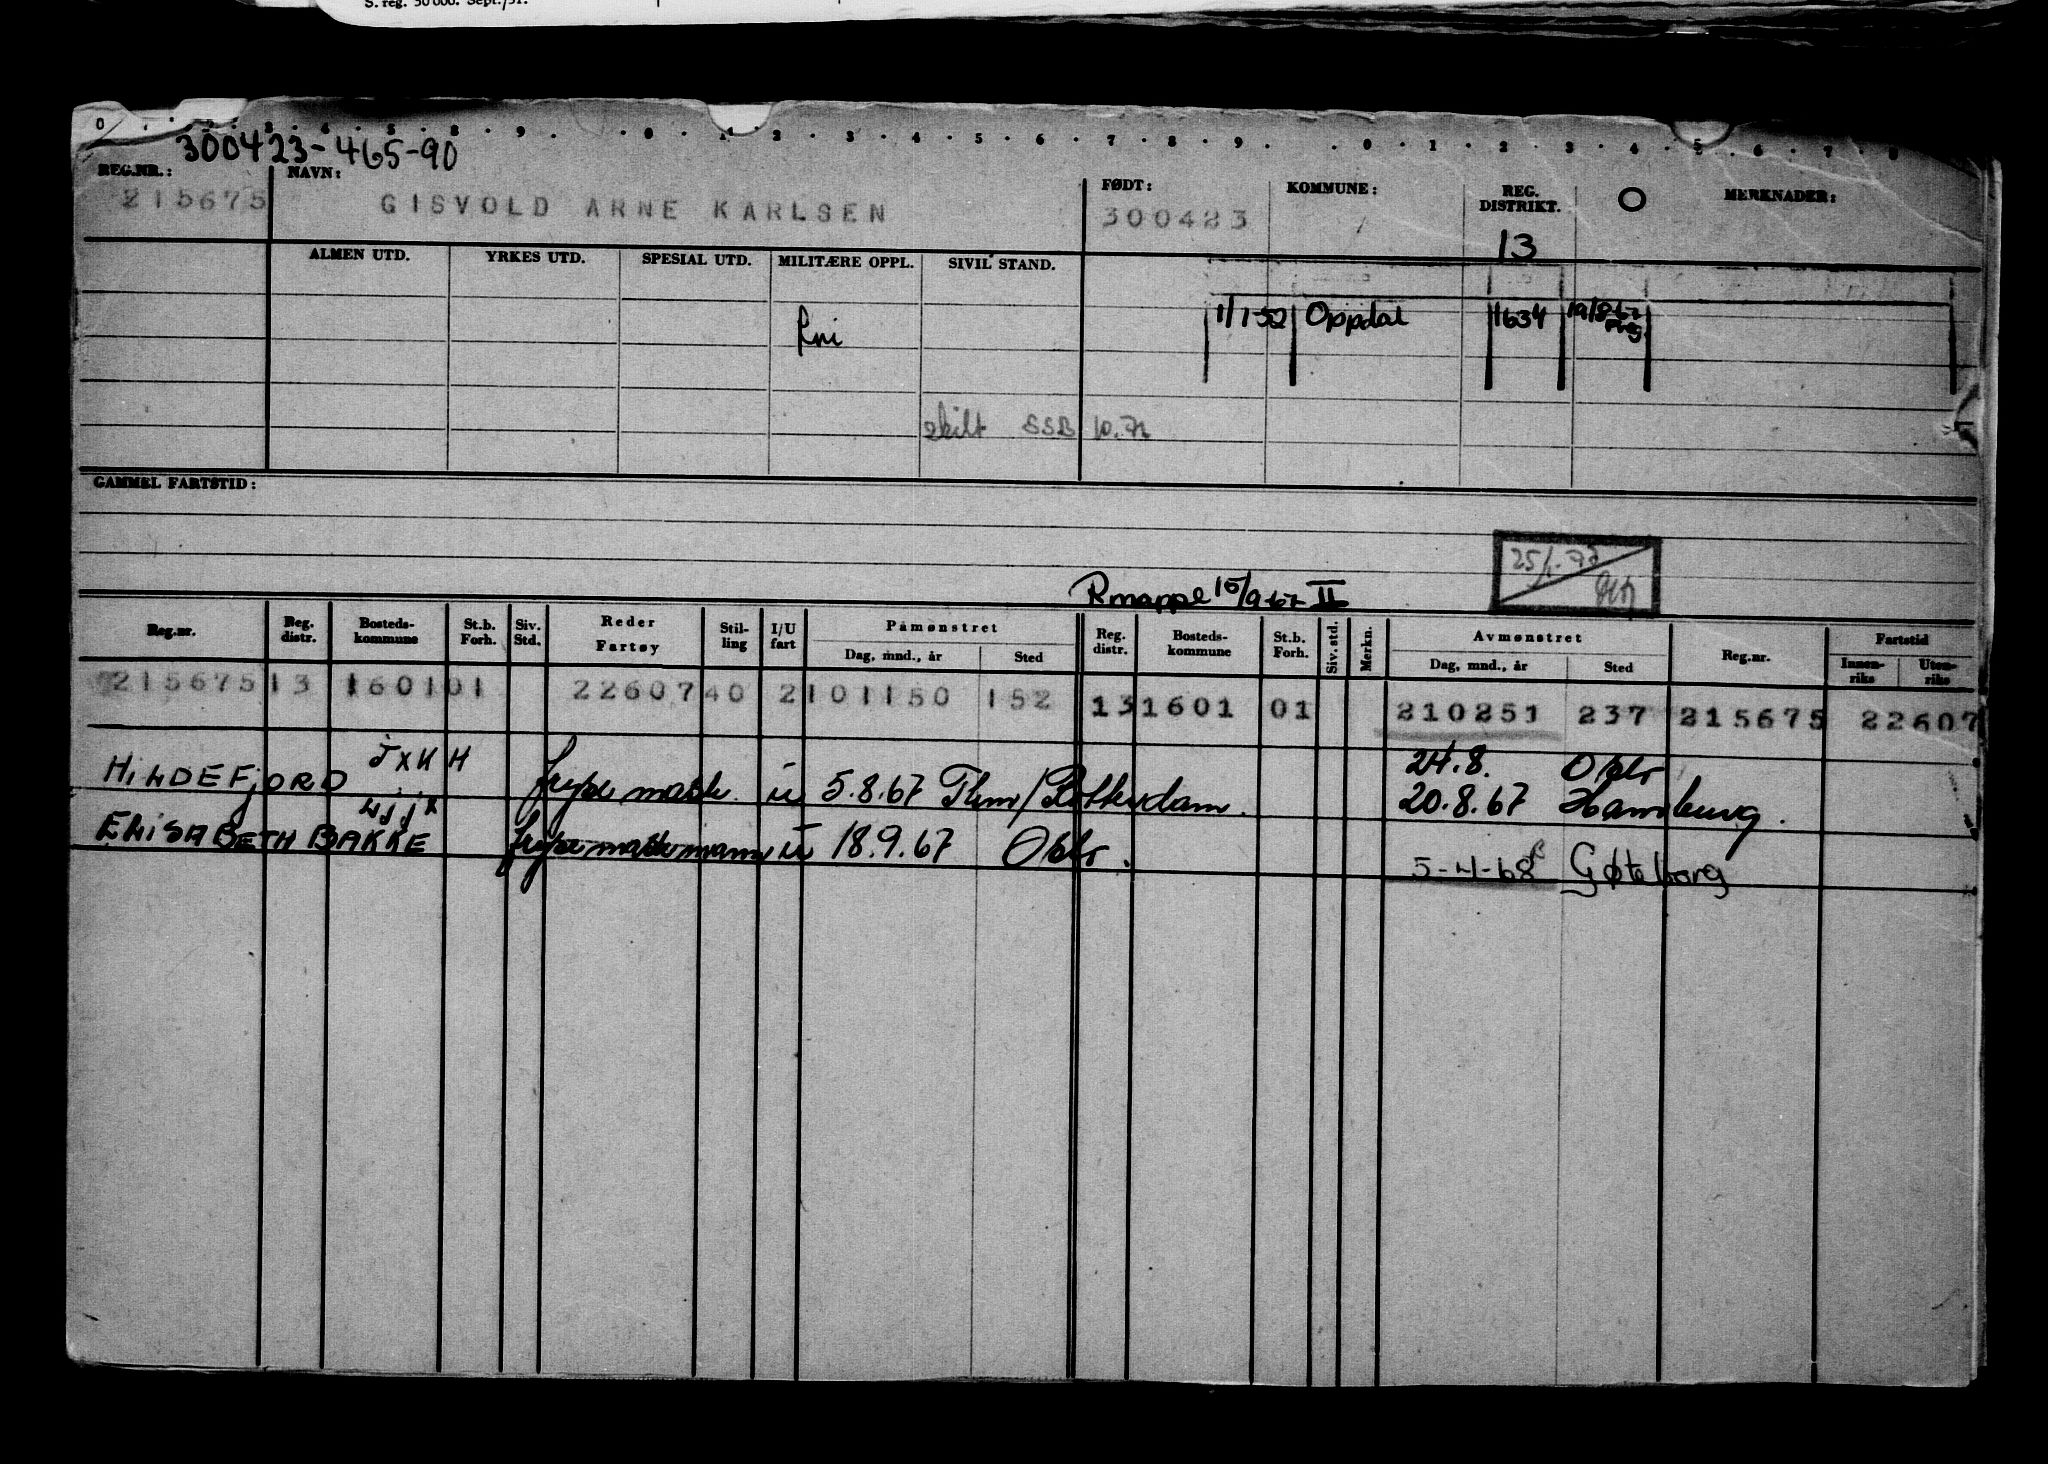 S. reg. 50 000. Sept./51.
300423-465-90
REG.NR.: NAVN: FØDT: KOMMUNE: REG. DISTRIKT. O MERKNADER:
215675 GISVOLD ARNE KARLSEN 300423 13
ALMEN UTD. YRKES UTD. SPESIAL UTD. MILITÆRE OPPL. SIVIL STAND.
1/1-52 Oppdal 1634 19/8-67
skilt SSB 10.72
GAMMEL FARTSTID:
25/1-72
Rmappe 15/9-67 II
Reg.nr. Reg. distr. Bosteds-kommune St.b. Forh. Siv. Std. Reder Fartøy Stil-ling I/U fart Påmønstret Reg. distr. Bosteds-kommune St.b. Forh. Siv. std. Merkn. Avmønstret Reg.nr. Fartstid
Dag, mnd., år Sted Dag, mnd., år Sted Innen-riks Uten-riks
215675 13 1601 01 22607 40 2 101150 152 13 1601 01 210251 237 215675 22607
JXKH 24.8. Oslo
HILDEFJORD u 5.8.67 Thm/Rotterdam. 20.8.67 Hamburg.
LJJX
ELISABETH BAKKE u 18.9.67 Oslo. 5-4-68 Gøteborg